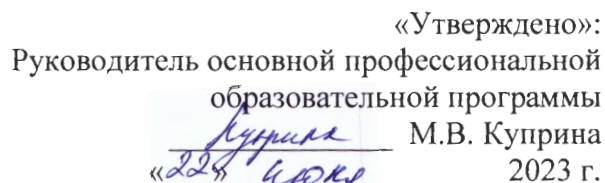 «Утверждено»:
Руководитель основной профессиональной
образовательной программы
Куприна М.В. Куприна
«22» июня 2023 г.